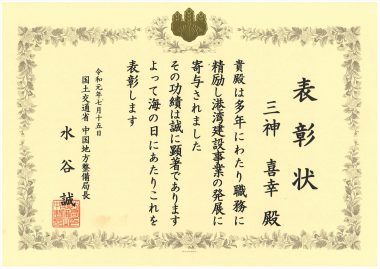 表彰状
三神 喜幸 殿
貴殿は多年にわたり職務に
精励し港湾建設事業の発展に
寄与されました
その功績は誠に顕著であります
よって海の日にあたりこれを
表彰します
令和元年七月十五日
国土交通省 中国地方整備局長
水谷 誠